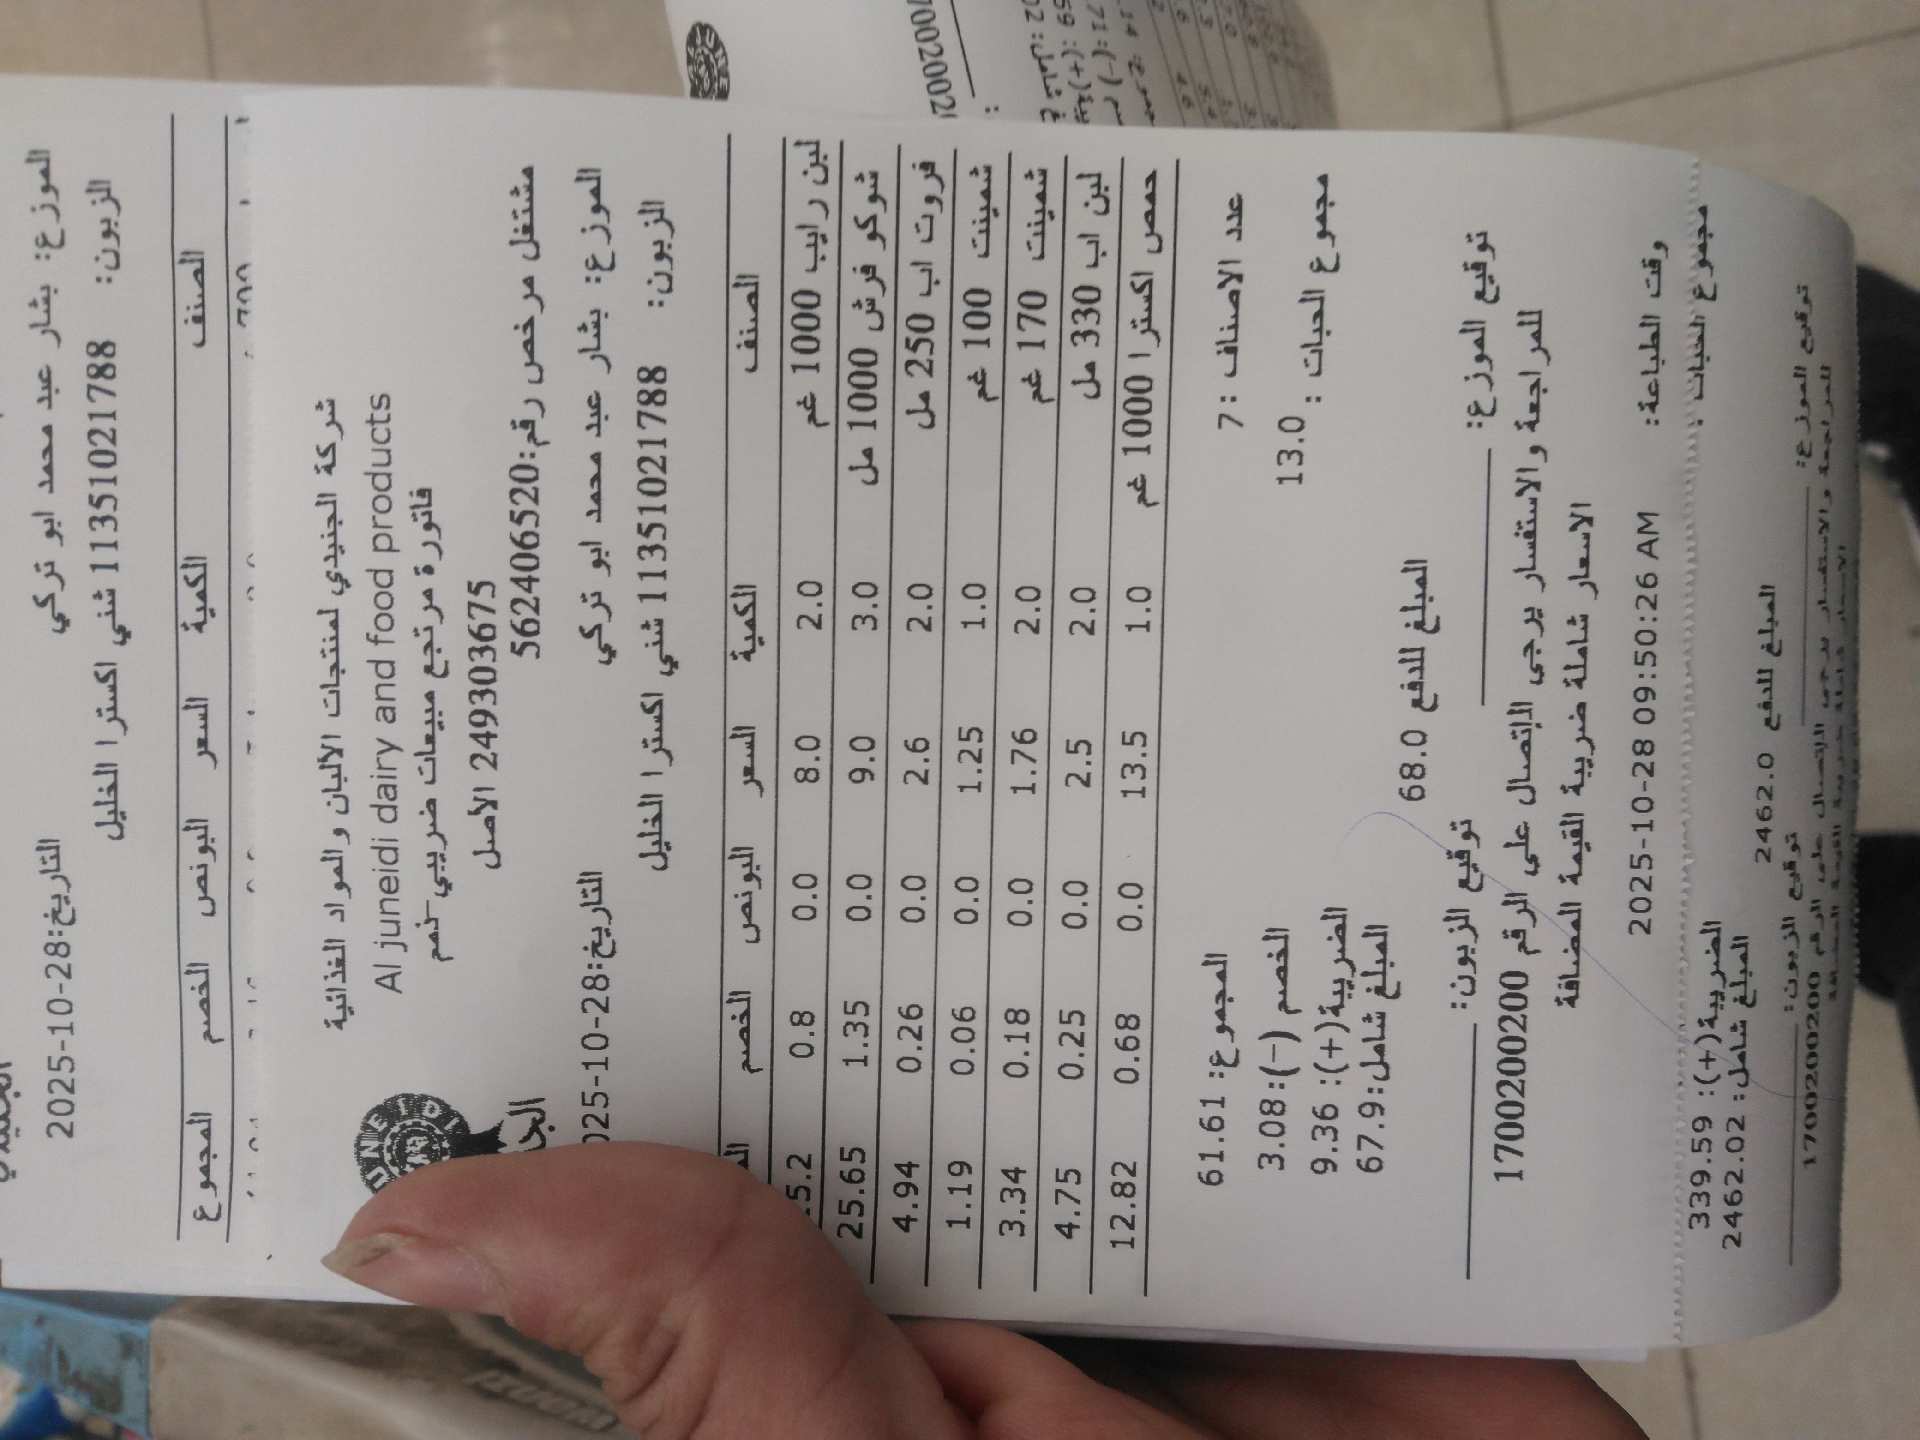 الموزع: بشار عبد محمد ابو تركي
التاريخ:28-10-2025
الزبون: 11351021788 شني اكسترا الخليل
الصنف الكمية السعر البونص الخصم المجموع
شركة الجنيدي لمنتجات الالبان والمواد الغذائية
Al juneidi dairy and food products
فاتورة مرتجع مبيعات ضريبي-ذمم
249303675 الأصل
مشتغل مرخص رقم:562406520
الموزع: بشار عبد محمد ابو تركي
التاريخ:28-10-025
الزبون: 11351021788 شني اكسترا الخليل
الصنف الكمية السعر البونص الخصم
لبن رايب 1000 غم 2.0 8.0 0.0 0.8 5.2
شوكو فرش 1000 مل 3.0 9.0 0.0 1.35 25.65
فروت اب 250 مل 2.0 2.6 0.0 0.26 4.94
شمينت 100 غم 1.0 1.25 0.0 0.06 1.19
شمينت 170 غم 2.0 1.76 0.0 0.18 3.34
لبن اب 330 مل 2.0 2.5 0.0 0.25 4.75
حمص اكسترا 1000 غم 1.0 13.5 0.0 0.68 12.82
عدد الاصناف : 7
المجموع: 61.61
مجموع الحبات : 13.0
الخصم (-): 3.08
الضريبة(+): 9.36
المبلغ شامل: 67.9
المبلغ للدفع 68.0
توقيع الموزع:
توقيع الزبون:
للمراجعة والاستفسار يرجى الاتصال على الرقم 1700200200
الاسعار شاملة ضريبة القيمة المضافة
وقت الطباعة: 2025-10-28 09:50:26 AM
مجموع الحبات :
الضريبة(+): 339.59
المبلغ شامل: 2462.02
المبلغ للدفع 2462.0
توقيع الموزع:
توقيع الزبون:
للمراجعة والاستفسار يرجى الاتصال على الرقم 1700200200